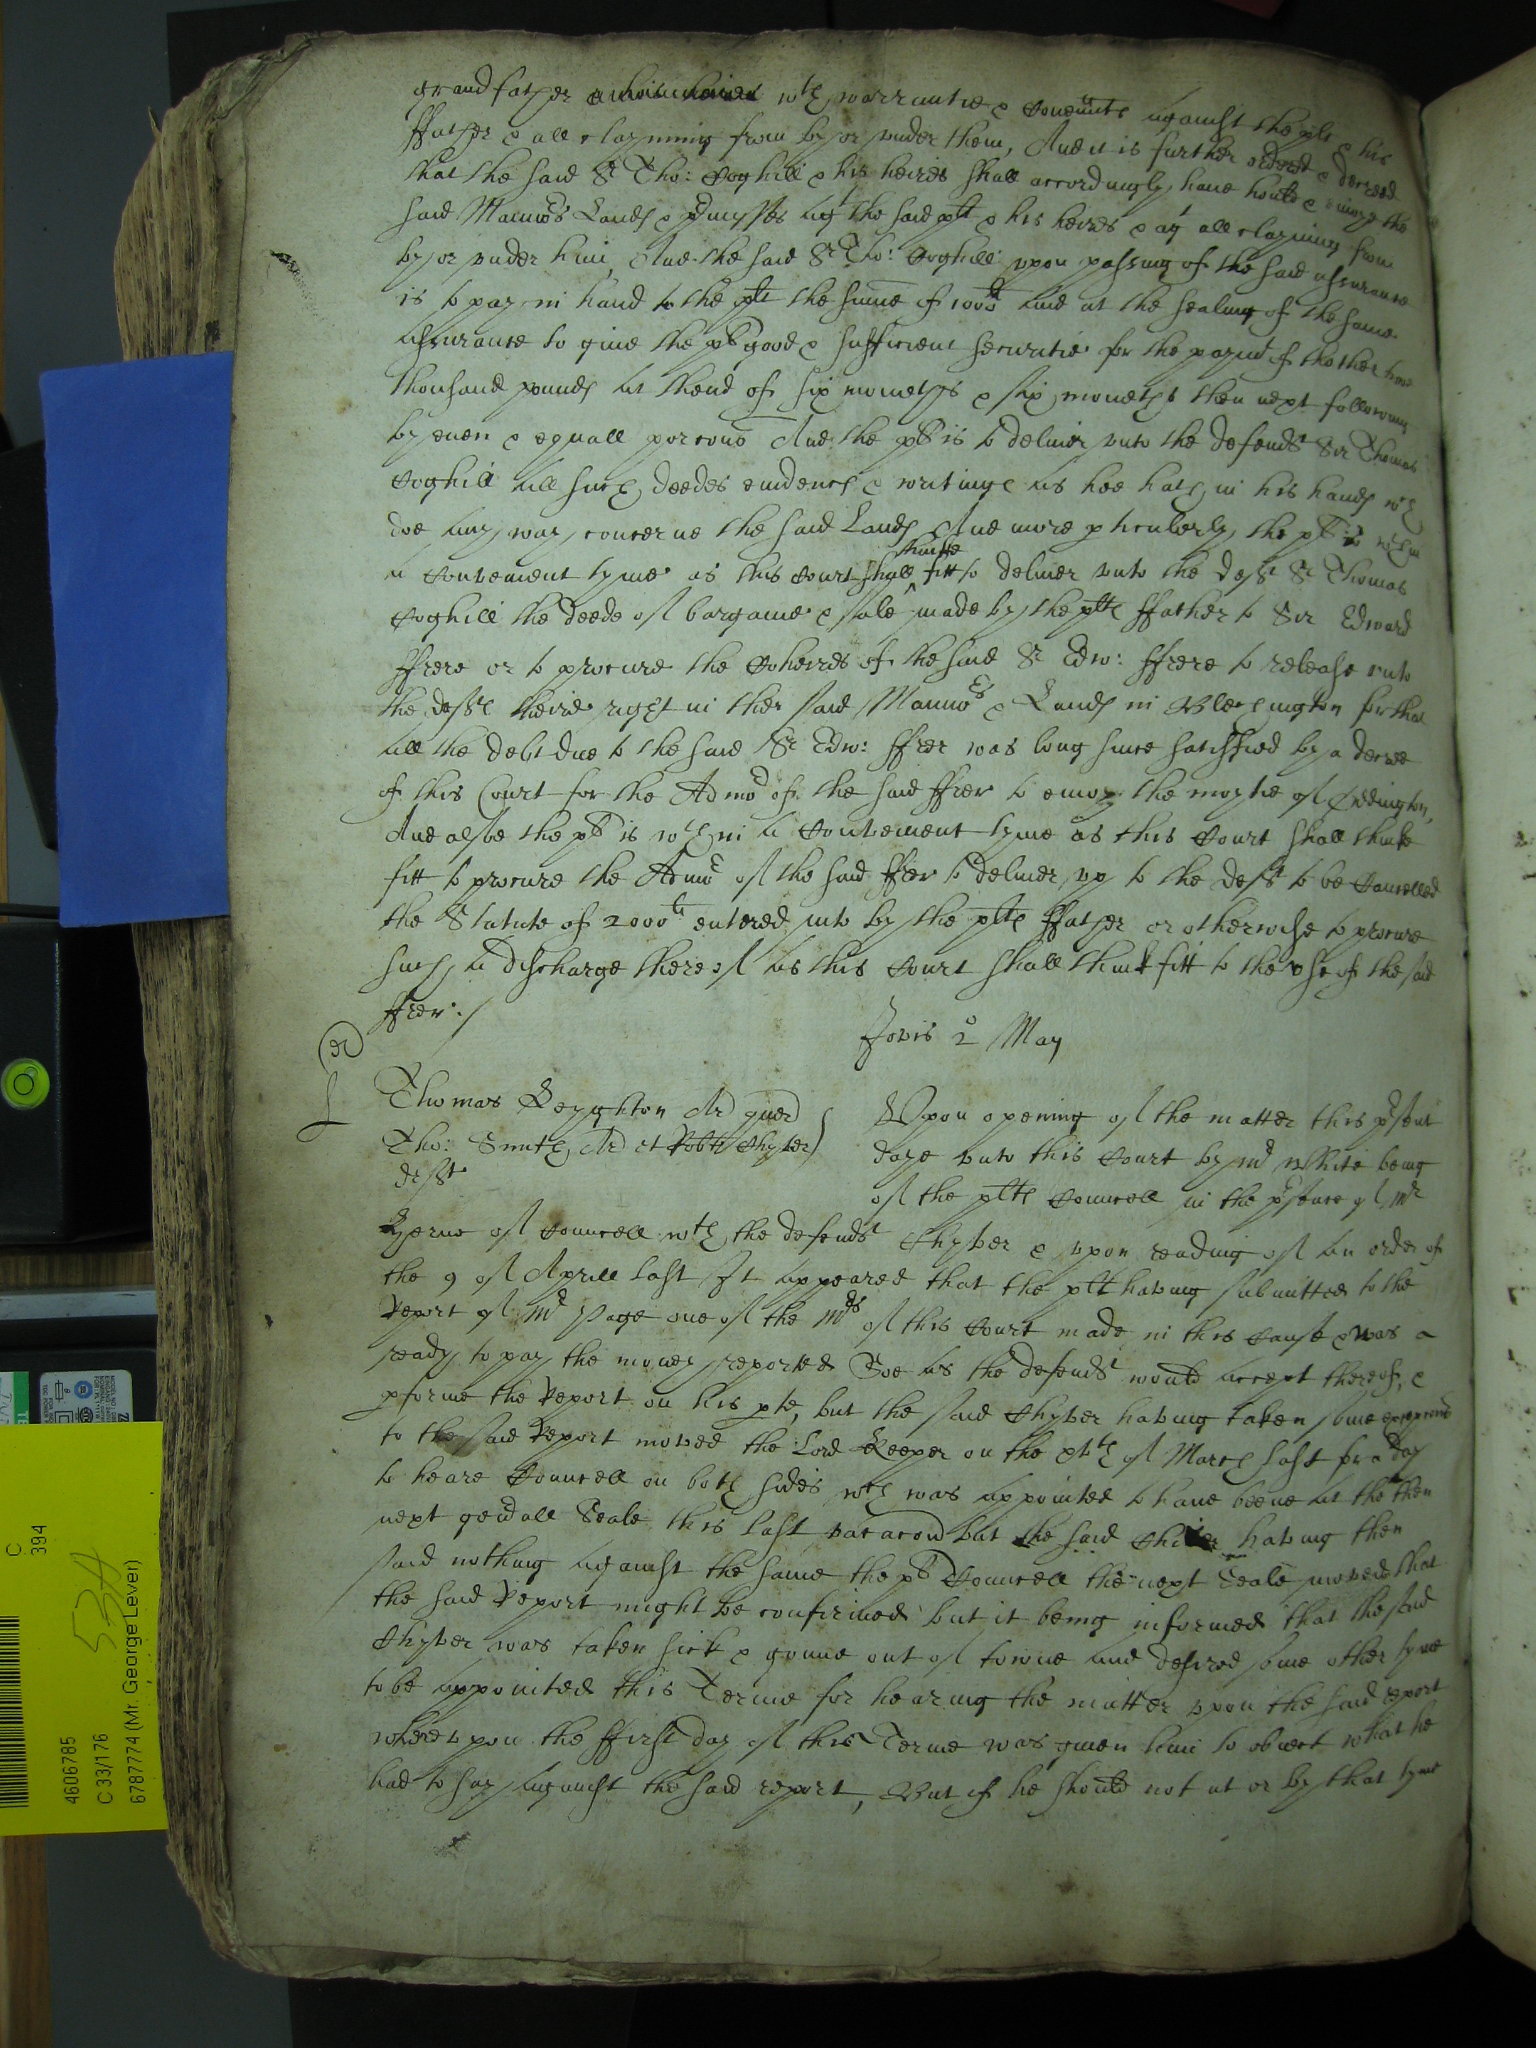 grandfather wth warrantie & Covennts against the plt & his
ffather & all clayming from by or under them, And it is further ordered & decreed
that the said Sr Tho: Coghill & his heires shall accordingly have hould & enioye the
said Mannors Lands & prmysses agt the said plt & his heires & agt all clayming from
by or under him, And the said Sr Tho: Coghill upon passing of the said assurance
is to pay in hand to the plt the summe of 1000li and at the sealing of the same
assurance to give the plt good & sufficient securitie for the paymt of thother two
thousand pounds at thend of six moneths & six moneths then next following
by even & equall porcons And the plt is to deliver unto the defendt Sir Thomas
Coghill all such deedes evidences & writings as hee hath in his hands wch
doe any way concerne the said Lands And more pticulerly the plt is wthin
a Convenient tyme as this Court shall thinke fitt to deliver unto the deft Sr Thomas
Coghill the deede of bargaine & sale made by the plts ffather to Sir Edward
ffrere or to procure the Coheires of the said Sr Edw: ffrere to release unto
the deft theire right in the said Mannor & Lands in Blechington for that
all the debt due to the said Sr Edw: ffrer was long since satisfied by a decree
of this Court for the Admr of the said ffrer to enioy the moytie of Eddington,
And alsoe the plt is wthin a Convenient tyme as this Court shall thinke
fitt to procure the Admr of the said ffrer to deliver up to the deft to be Cancelled
the Statute of 2000li entered into by the plts ffather or otherwise to procure
such a discharge thereof as this Court shall think fitt to the use of the said
ffrer./
Jovis 2o May
Thomas Leyghton Ar quer
Tho: Smith Ar et Robt Chyver
deft
Upon opening of the matter this prsent
daye unto this Court by Mr White being
of the plts Councell in the prsence of Mr
Herne of Councell wth the defendt Chyver & upon reading of an order of
the 9 of Aprill last It appeared that the plt having submitted to the
Report of Mr Page one of the Mrs of this Court made in this cause & was
ready to pay the money reported Soe as the defendt would accept thereof, &
pforme the Report on his pte, but the said Chyver having taken some
to the said Report moved the Lord Keeper on the of March last for a day
to heare Councell on both sides wch was appointed to have beene at the then
next genrall Seale this last vacacon but the said having then
said nothing against the same the plts Councell the next Seale moved that
the said Report might be confirmed but it being informed that the said
Chyver was taken sick & gonne out of towne and desired some other tyme
to be appointed this Terme for hearing the matter upon the said report
whereupon the ffirst day of this Terme was given him to obiect what he
had to say against the said report, But if he should not at or by that tyme
4606785
C 33/176
6787774 (Mr. George Lever)
C
394
534